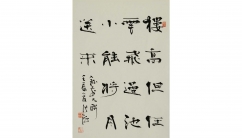 樓高但任
雲飛過池
小能將月
送來